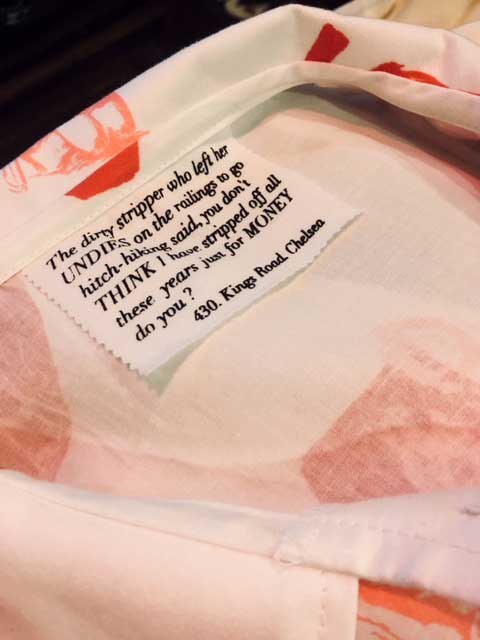 The dirty stripper who left her
UNDIES on the railings to go
hitch-hiking said, you don't
THINK I have stripped off all
these years just for MONEY
do you?
430. Kings Road. Chelsea